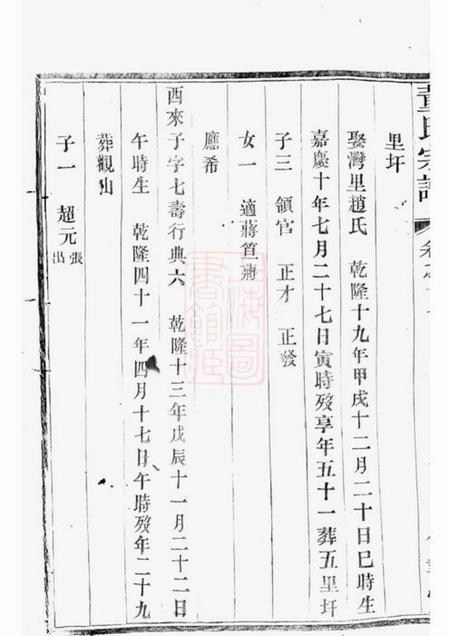 董氏宗譜
里圩
娶灣里趙氏 乾隆十九年甲戌十二月二十日巳時生
嘉慶十年七月二十七日寅時歿享年五十一葬五里圩
子三 領官 正才 正發
女一 適蔣筥蔣
應希
酉來子字七壽行典六 乾隆十三年戊辰十一月二十二日
午時生 乾隆四十一年四月十七日午時歿年二十九
葬觀山
子一 超元 張出
上海圖書館藏